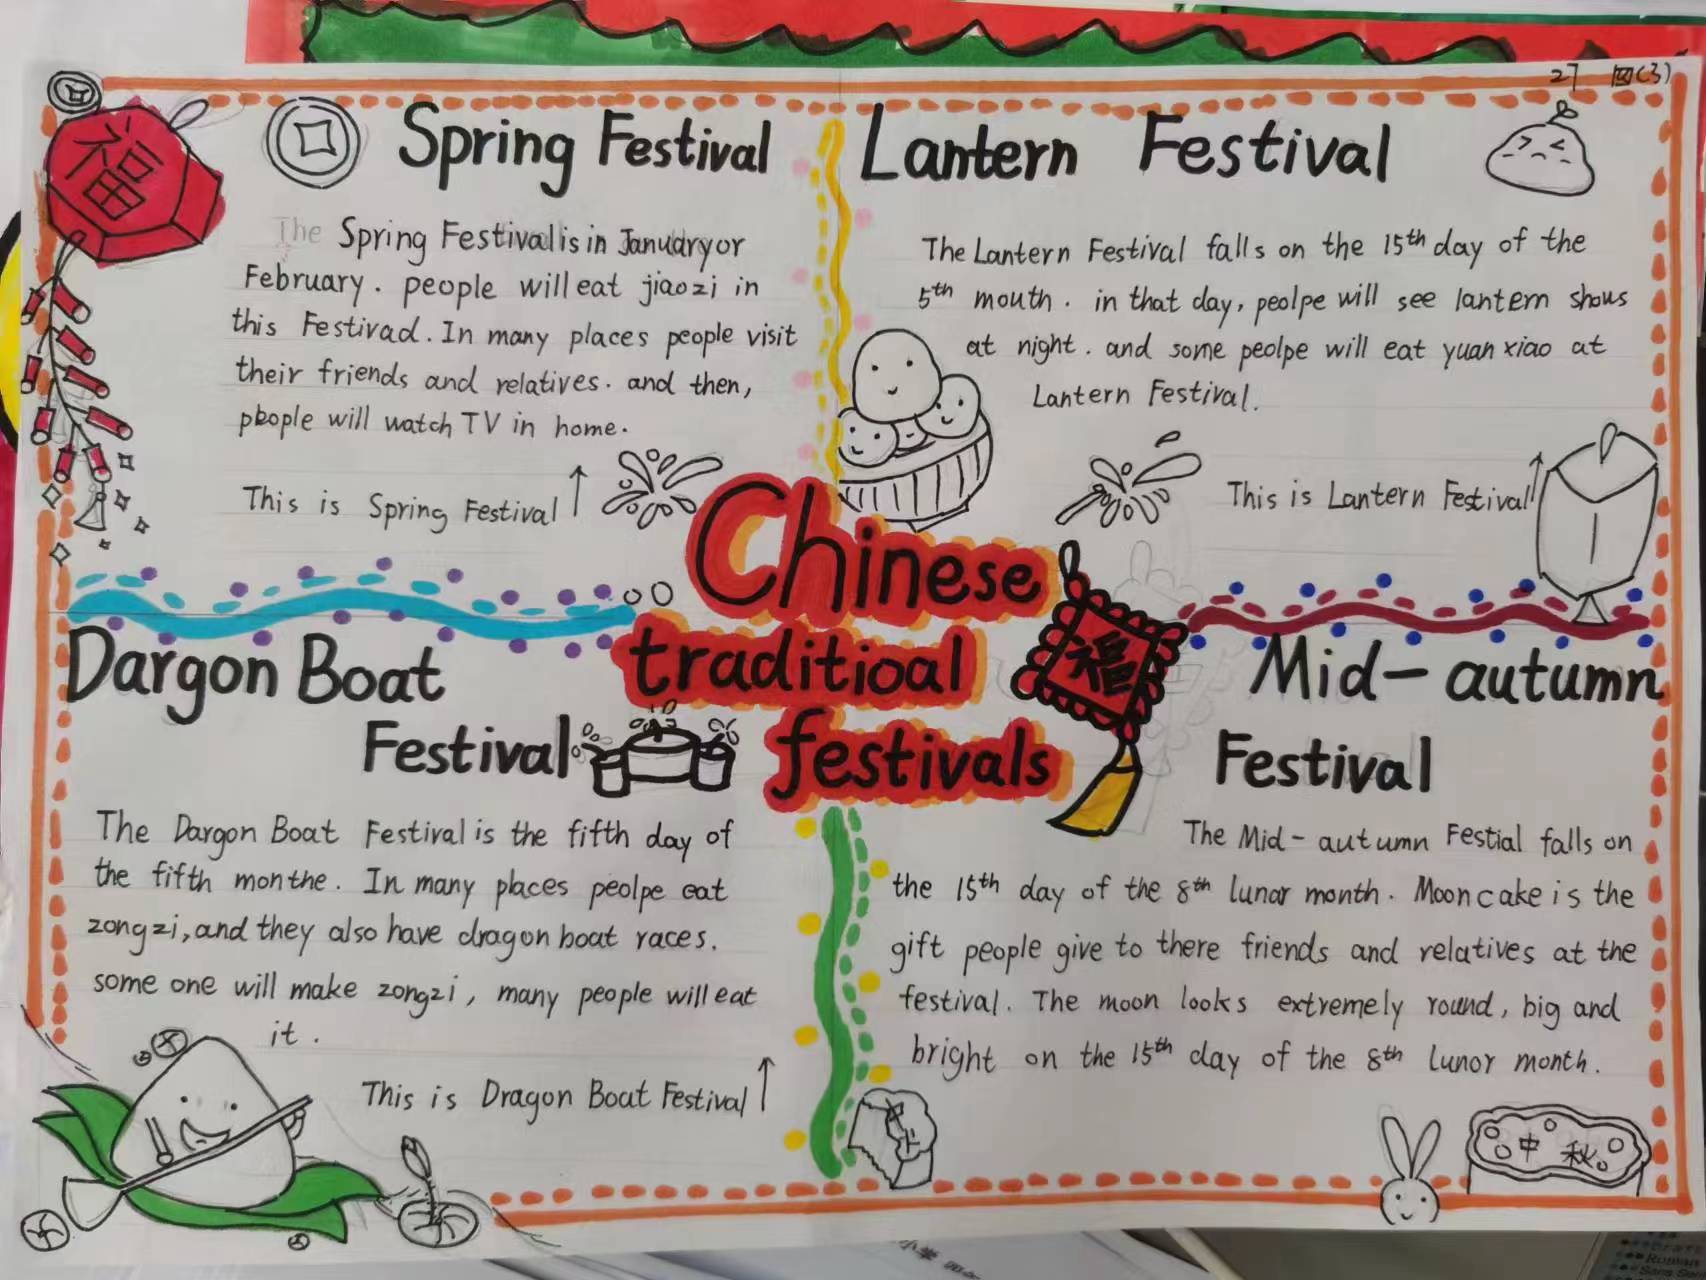 27 四(3)
福
Spring Festival
The Spring Festival is in January or
February. people will eat jiaozi in
this Festivad. In many places people visit
their friends and relatives. and then,
people will watch TV in home.
This is Spring Festival ↑
Lantern Festival
The Lantern Festival falls on the 15th day of the
5th mouth. in that day, peolpe will see lantern shows
at night. and some peolpe will eat yuan xiao at
Lantern Festival.
This is Lantern Festival ↑
Chinese
traditioal
festivals
福
Dargon Boat
Festival
The Dargon Boat Festival is the fifth day of
the fifth monthe. In many places peolpe eat
zongzi, and they also have dragon boat races.
some one will make zongzi, many people will eat
it.
This is Dragon Boat Festival ↑
Mid-autumn
Festival
The Mid-autumn Festial falls on
the 15th day of the 8th lunar month. Mooncake is the
gift people give to there friends and relatives at the
festival. The moon looks extremely round, big and
bright on the 15th day of the 8th lunor month.
中秋
小学
Roman